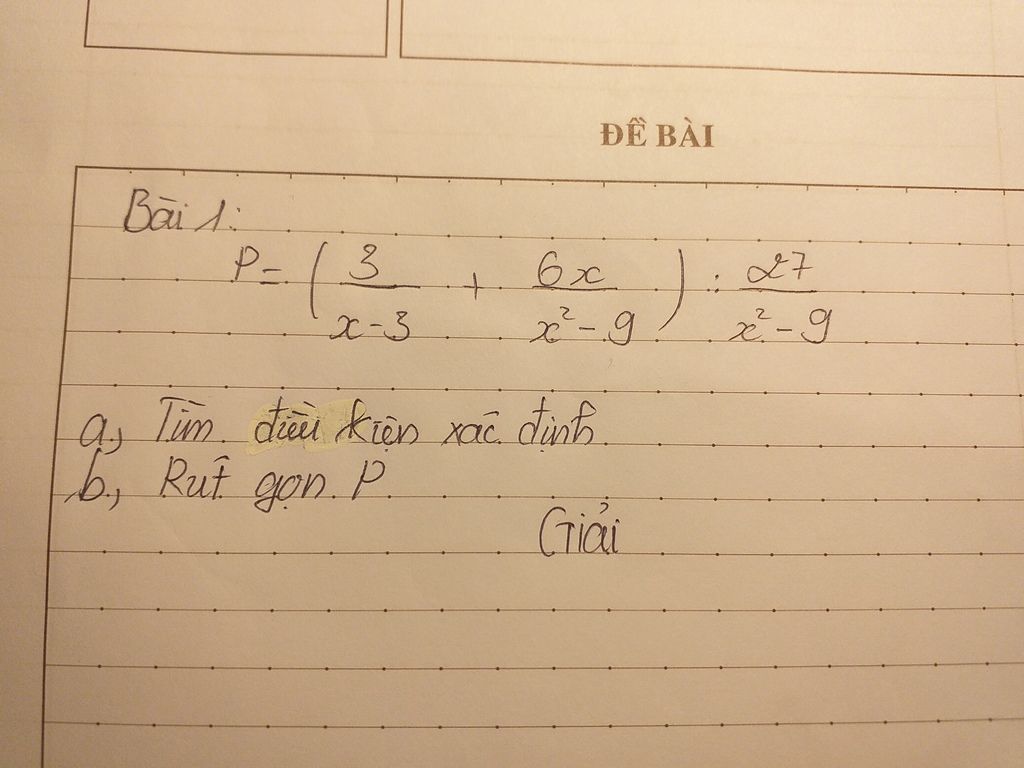 ĐỀ BÀI
Bài 1:
P = ( 3/(x-3) + 6x/(x²-9) ) : 27/(x²-9)
a, Tìm điều kiện xác định
b, Rút gọn P
Giải